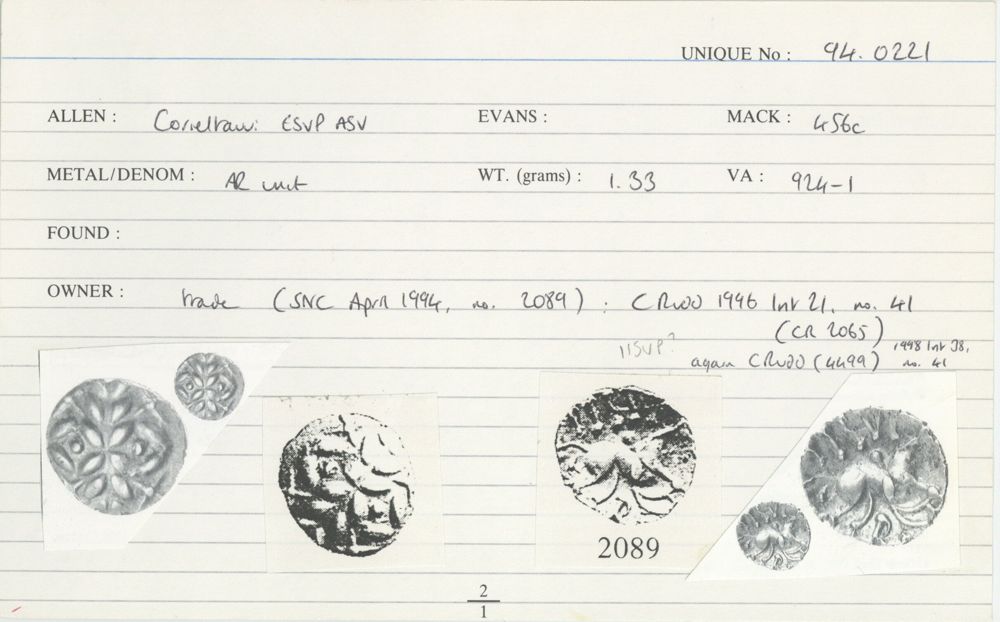 UNIQUE No : 94.0221
ALLEN : Corieltauvi ESVP ASV EVANS : MACK : 456c
METAL/DENOM : AR unit WT. (grams) : 1.33 VA : 924-1
FOUND :
OWNER : trade (SNC April 1994, no. 2089) : CRUDD 1996 list 21, no. 41
(CR 2065)
IISVP? again CRUDD (4499) 1998 list 38, no. 41
2089
2
1